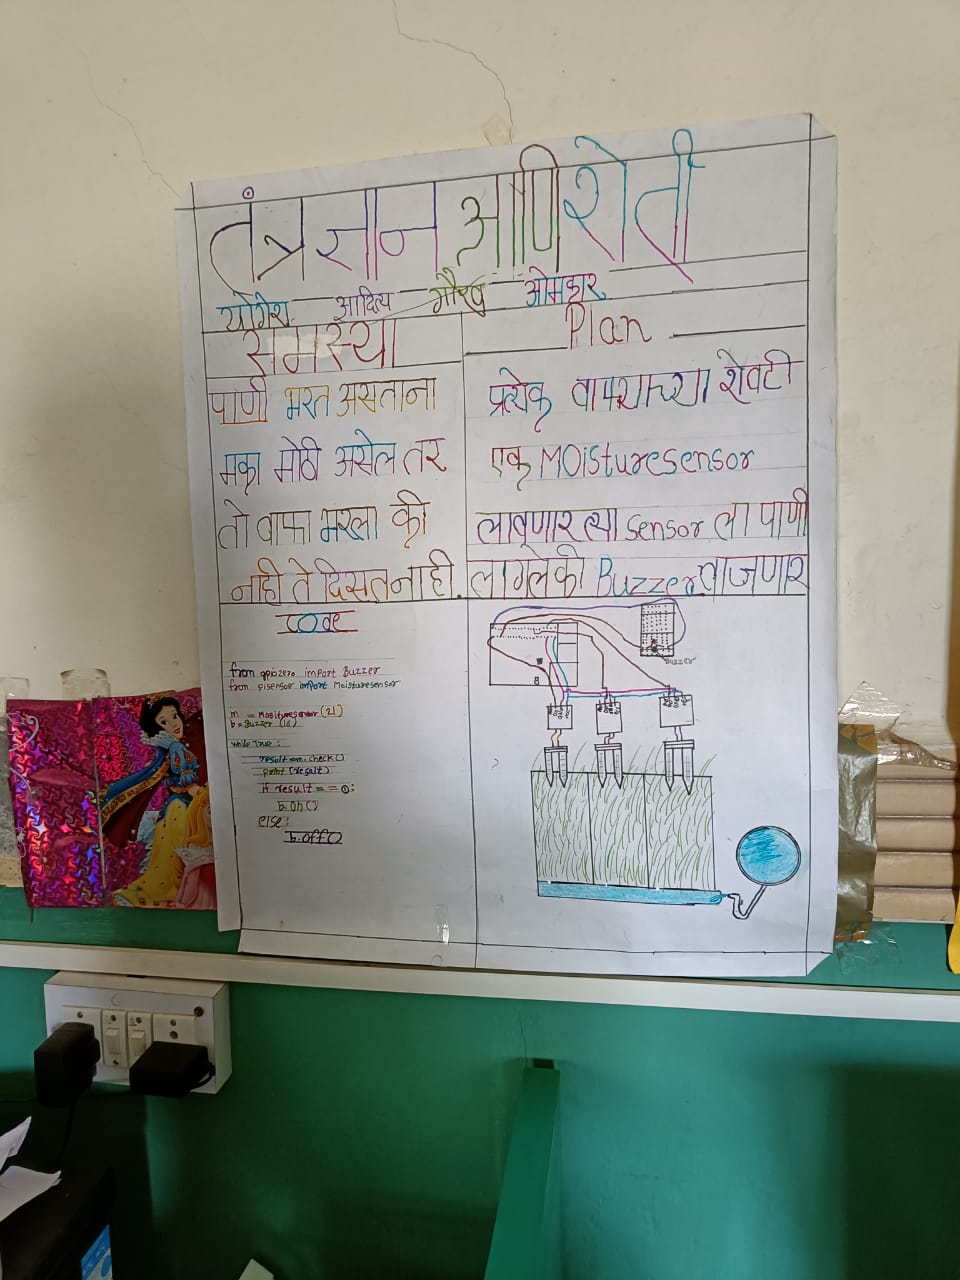 तंत्रज्ञान आणि शेती
योगेश आदित्य गौरव ओमकार
समस्या
पाणी भरत असताना
मका मोठी असेल तर
तो वाफा भरला की
नाही ते दिसत नाही.
Plan
प्रत्येक वाफ्याच्या शेवटी
एक Moisturesensor
लावणार त्या sensor ला पाणी
लागले की Buzzer वाजणार
Code
from gpiozero import Buzzer
from pisensor import Moisturesensor
m = Mosituresensor (21)
b = Buzzer (16)
while True :
result = m.check()
print (result)
if result == 0:
b.on()
else:
b.off()
Buzzer